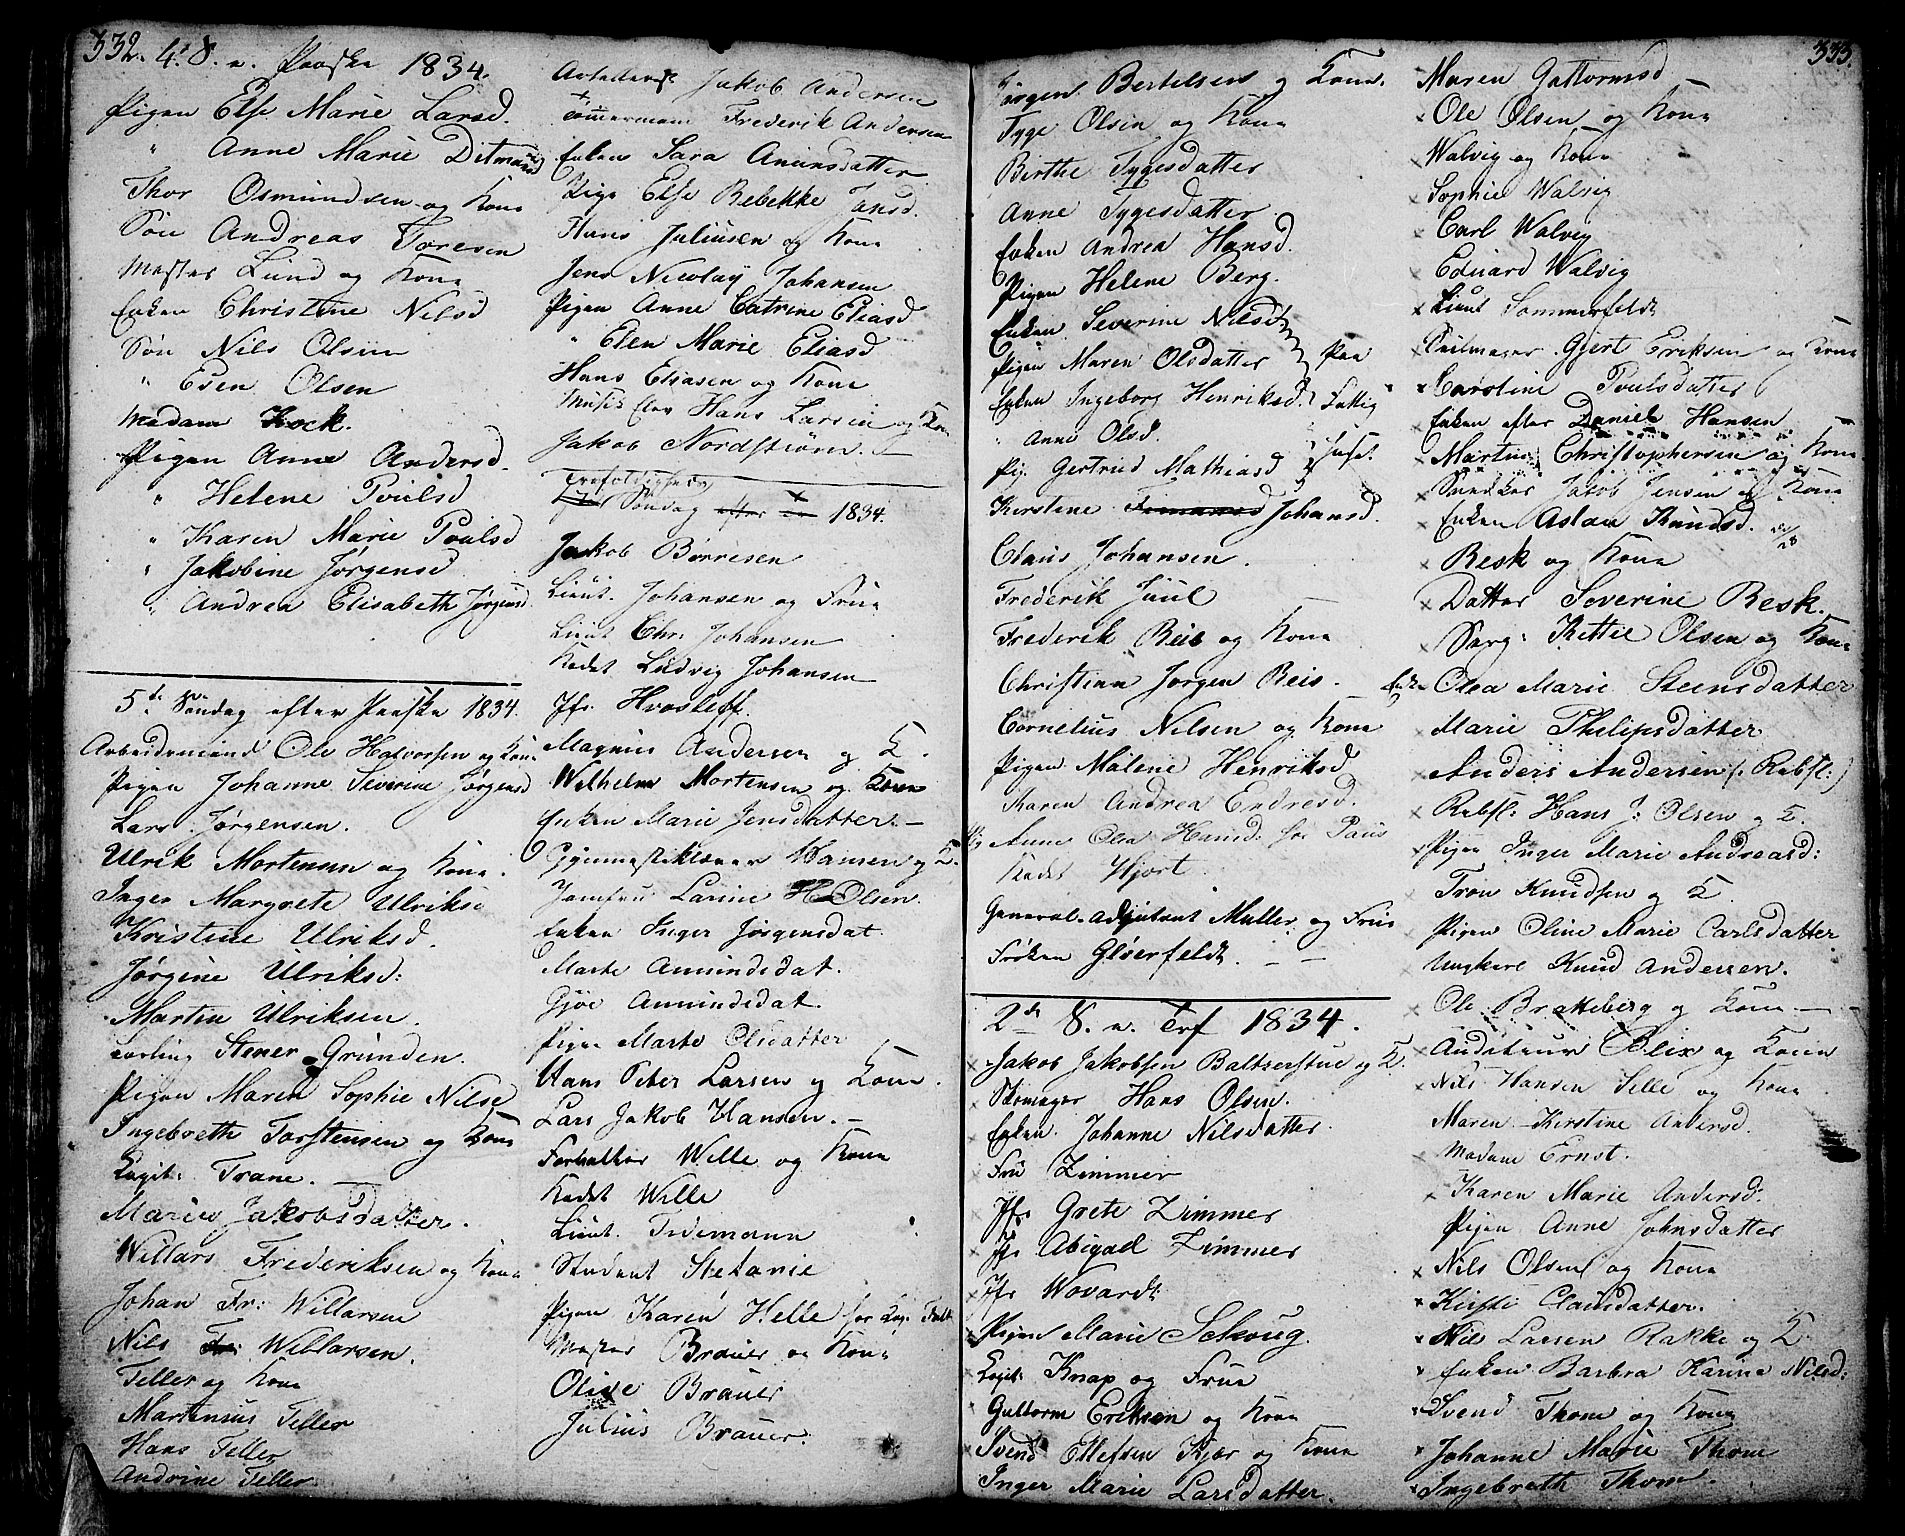 332. 4. S. e. Paaske 1834.
Pigen Else Marie Larsd.
" Anne Marie Ditmansd
Thor Osmundsen og Kone
Søn Andreas Toresen
Master Lund og Kone
Enken Christine Nilsd
Søn Nils Olsen
" Even Olsen
Madam Kock.
Pigen Anne Andersd.
" Helene Poulsd
" Karen Marie Poulsd
" Jakobine Jørgensd
" Andrea Elisabeth Jørgensd
5te Søndag efter Paaske 1834.
Arbeidsmand Ole Halvorsen og Kone
Pigen Johanne Severine Jørgensd
Lars Jørgensen.
Ulrik Mortensen og Kone.
Inger Margrete Ulriksd
Kristine Ulriksd.
Jørgine Ulriksd:
Martin Ulriksen.
Lærling Stener Grunden.
Pigen Maren Sophie Nilsd
Ingebreth Torstensen og Kone
Capit: Trane.
Marie Jakobsdatter.
Willars Frederiksen og Kone
Johan Fr: Willarsen
Nils Fr: Willarsen.
Teller og Kone
Martensus Teller
Hans Teller
Andrine Teller
Jakob Andersen
Tømmermand Frederik Andersen
Enken Sara Amunsdatter
Pige Else Rebekke Jansd.
Hans Juliusen og Kone
Jens Nicolay Johansen
Pigen Anne Catrine Eliasd
" Elen Marie Eliasd
Hans Eliasen og Kone
Musik Elev Hans Larsen og Kone
Jakob Nordstrøm.
Trefoldigheds
Søndag efter 1834.
Jakob Børresen
Lieut. Johansen og Frue
Lieut Chr: Johansen
Kadet Ludvig Johansen
Jfr. Hvosleff.
Magnus Andersen og K.
Wilhelm Mortensen og Kone
Enken Marie Jensdatter.
Gymnastiklærer Hansen og K.
Jomfru Larine H Olsen.
Enken Inger Jørgensdat.
Marte Amundsdat.
Gjøe Amundsdat.
Pigen Marte Olsdatter
Hans Peter Larsen og Kone.
Lars Jakob Hansen.
Forvalter Wille og Kone
Kadet Wille
Lieut. Tidemann
Student Stefanie
Pigen Karen Helle hos Cap. Falk
Master Brauer og Kone
Olive Brauer
Julius Brauer.
333.
Jørgen Bertelsen og Kone.
Tyge Olsen og Kone
Birthe Tygesdatter
Anne Tygesdatter.
Enken Andrea Hansd.
Pigen Helene Berg.
Enken Severine Nilsd
Pigen Maren Olsdatter Paa
Enken Ingeborg Henriksd. Fattig
" Anne Olsd. huset.
Pig Gertrud Mathiasd
Kirstine Johansd.
Claus Johansen.
Frederik Juul
Frederik Reis og Kone
Christian Jørgen Reis.
Cornelius Nilsen og Kone
Pigen Malene Henriksd
Karen Andrea Endresd.
Anne Olea Hansd: hos Paus
Kadet Hjort.
General-Adjutant Muller og Frue
Frøken Glöerfeldt.
2den S. e. Tref 1834.
Jakob Jakobsen Baltserstue og K.
Skomager Hans Olsen.
Enken Johanne Nilsdatter.
Fru Zimmer
Jfr Grete Zimmer
Jfr Abigael Zimmer
Jfr Wovardt
Pigen Marie Schoug.
Capit: Knap og Frue
Guttorm Eriksen og Kone
Svend Ellefsen Kjær og Kone
Inger Marie Larsdatter.
Maren Guttormsd
Ole Olsen og Kone
Walvig og Kone
Sophie Walvig
Carl Walvig
Eduard Walvig
Lieut Sommerfeldt
Seilmager Gjert Eriksen og Kone
Carstine Poulsdatter
Enken efter Daniel Hansen
Martin Christophersen og Kone
Snedker Jakob Jensen og Kone
Enken Aslau Knudsd.
Resk og Kone
Datter Severine Resk.
Serg: Kittil Olsen og Kone
Enke Olea Marie Steensdatter
Marie Philipsdatter
Anders Andersen (: Rebsl:)
Rebsl: Hans J: Olsen og K.
Pigen Inger Marie Andreasd:
Tron Knudsen og K
Pigen Oline Marie Carlsdatter
Ungkarl Knud Andersen.
Ole Brakkeberg og Kone
Auditeur Blix og Kone
Nils Hansen Selle og Kone
Maren Kirstine Andersd.
Madame Ernst.
Karen Marie Andersd:
Pigen Anne Johnsdatter
Nils Olsen og Kone
Kirsti Clausdatter.
Nils Larsen Rakke og K.
Enken Barbra Karine Nilsd:
Svend Thom og Kone
Johanne Marie Thom
Ingebreth Thom.